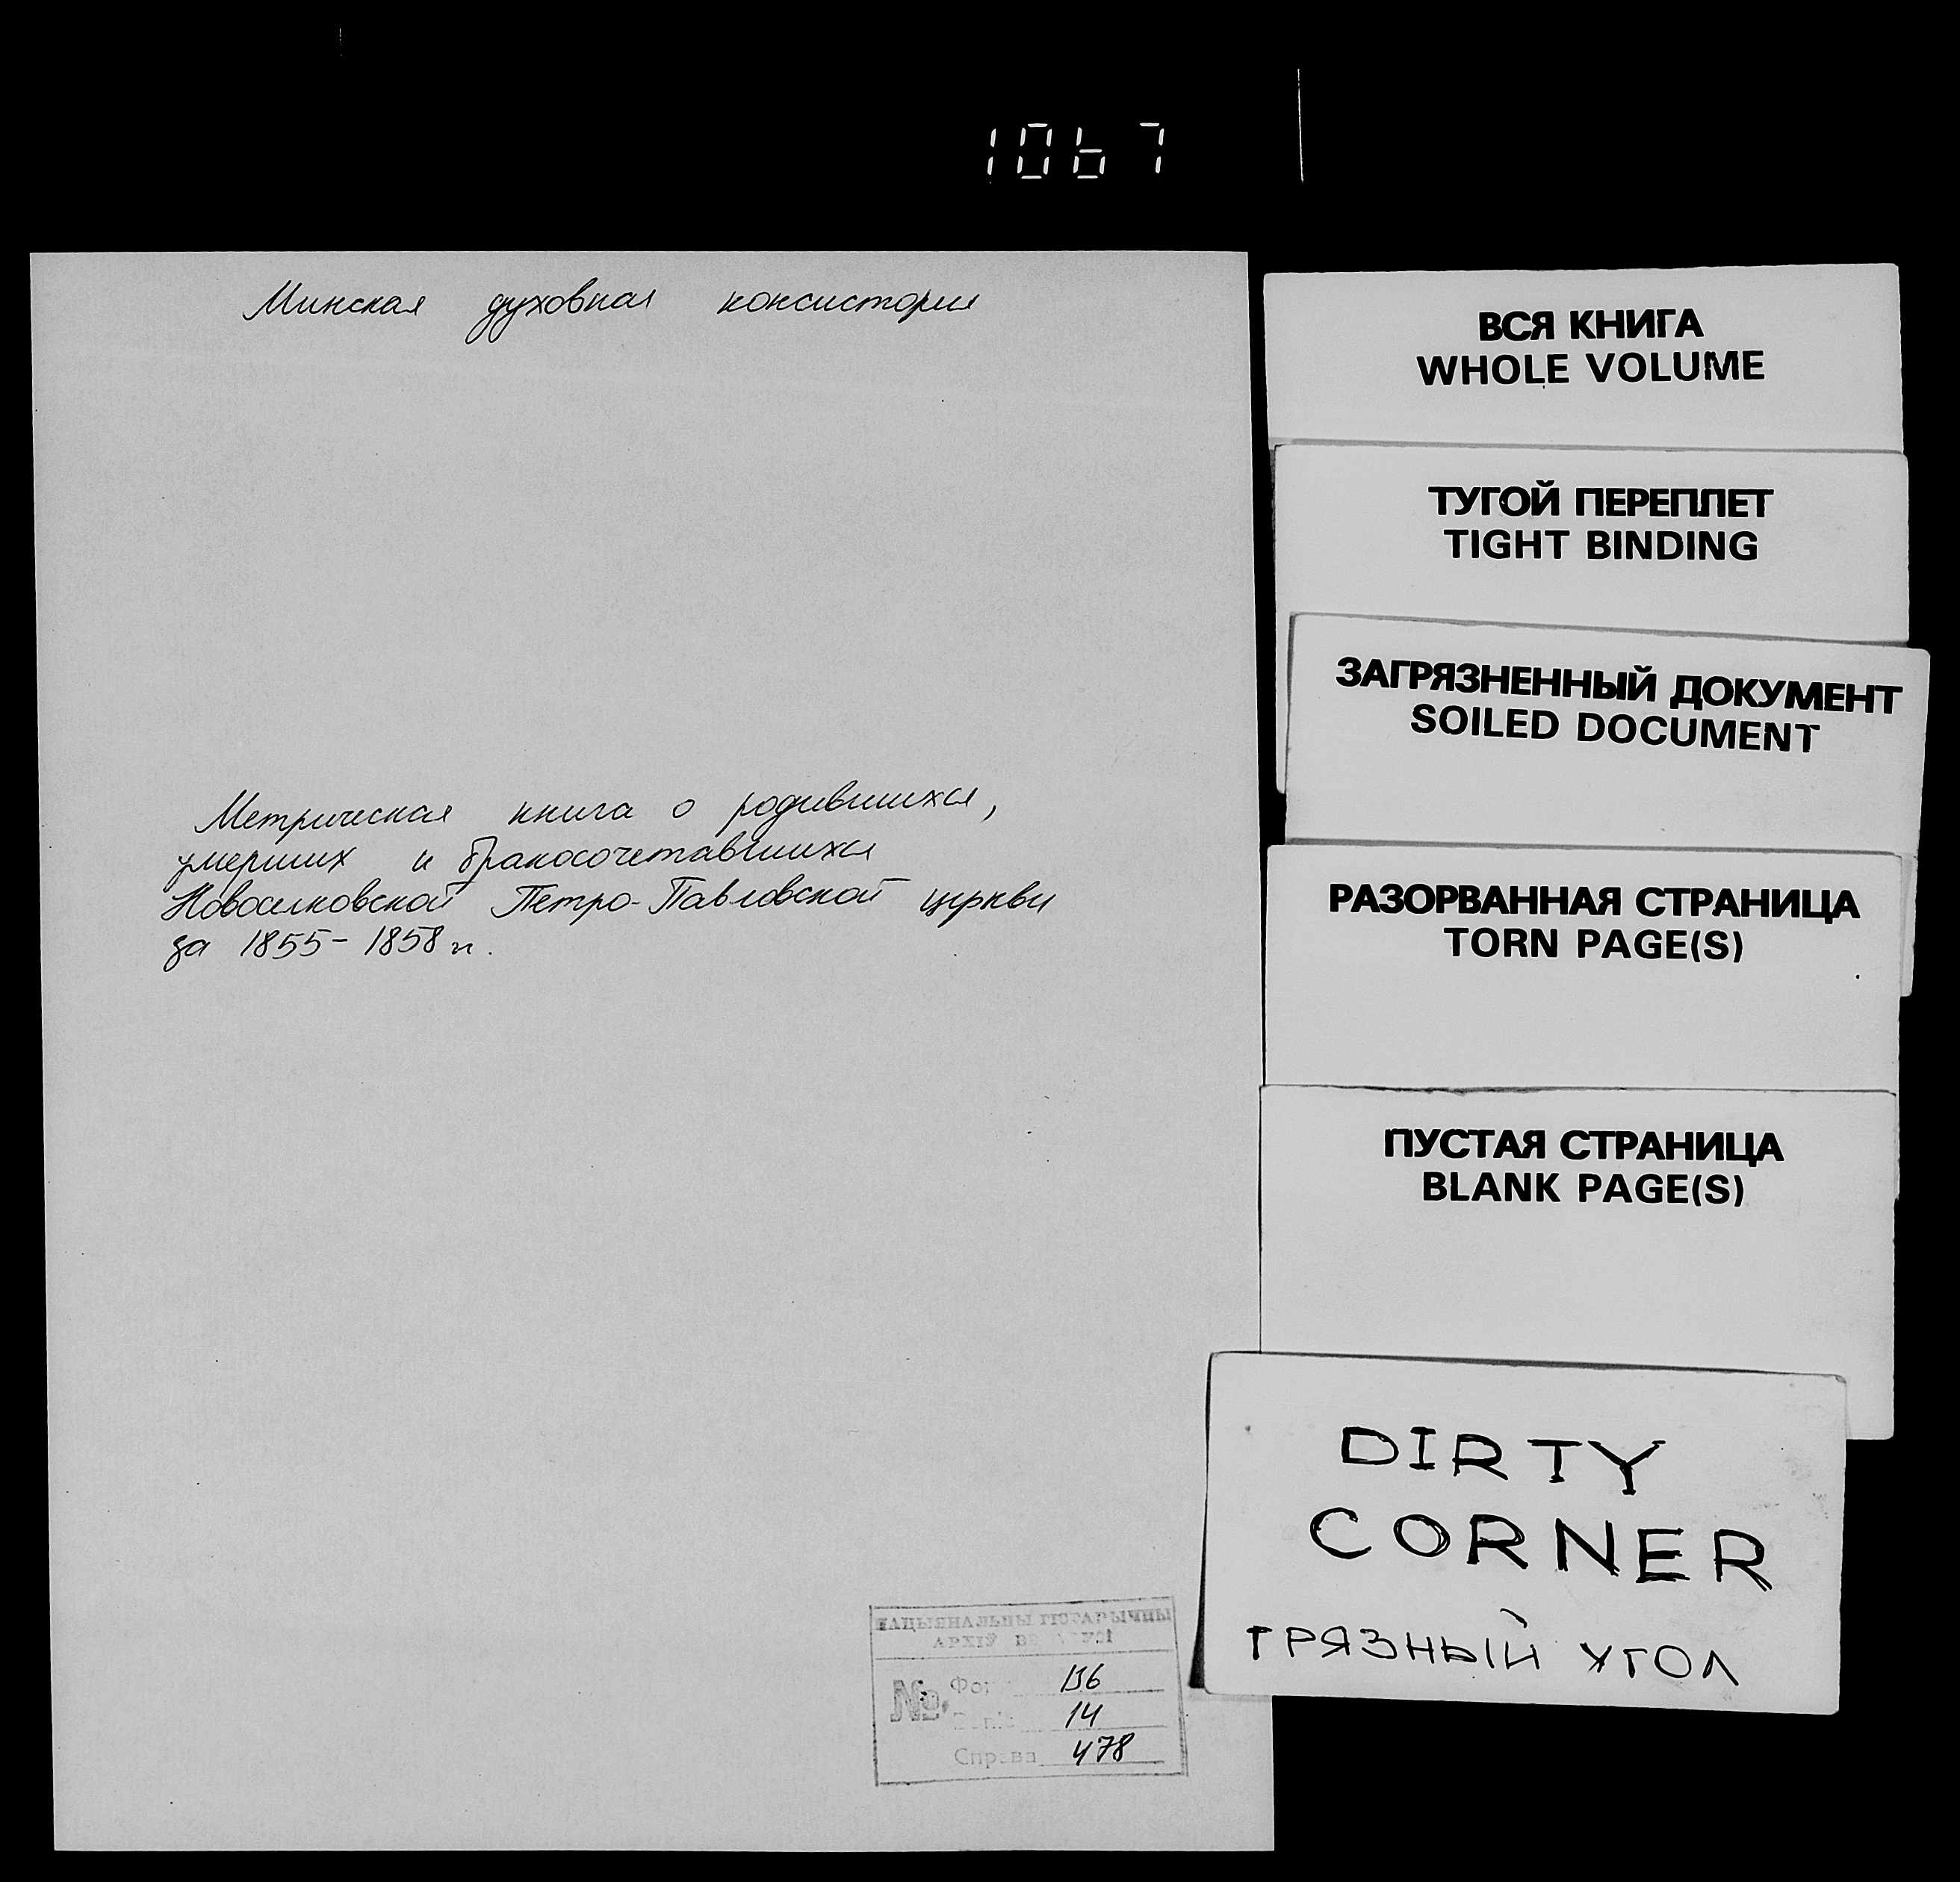 1067
Минская духовная консистория
Метрическая книга о родившихся,
умерших и бракосочетавшихся
Новоселковской Петро-Павловской церкви
за 1855-1858 гг.
НАЦЫЯНАЛЬНЫ ГІСТАРЫЧНЫ
АРХІЎ
№ 136
14
Справа 478
ВСЯ КНИГА
WHOLE VOLUME
ТУГОЙ ПЕРЕПЛЕТ
TIGHT BINDING
ЗАГРЯЗНЕННЫЙ ДОКУМЕНТ
SOILED DOCUMENT
РАЗОРВАННАЯ СТРАНИЦА
TORN PAGE(S)
ПУСТАЯ СТРАНИЦА
BLANK PAGE(S)
DIRTY
CORNER
ГРЯЗНЫЙ УГОЛ